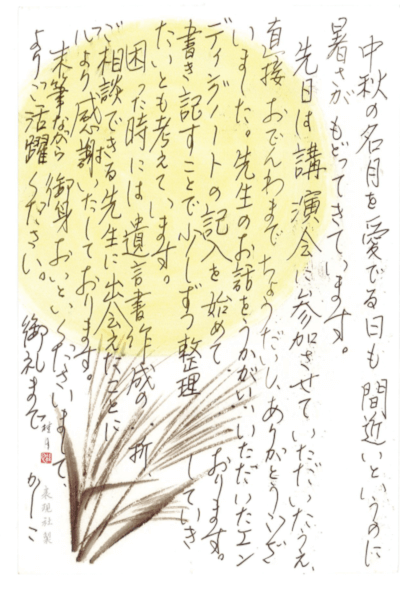 中秋の名月を愛でる日も間近いというのに
暑さがもどってきています。
先日は講演会に参加させていただいたうえ、
直接おでんわまでちょうだいしありがとうござ
いました。先生のお話をうかがい、いただいたエン
ディングノートの記入を始めて、、おります。
書き記すことで少しずつ整理していき
たいとも考えています。
困った時には、遺言書作成の、折、
ご相談できる先生に出会えたことに
心より感謝いたしております。
末筆ながら御身おいといくださいまして、
よりご活躍ください。御礼まで。
かしこ
表現社製